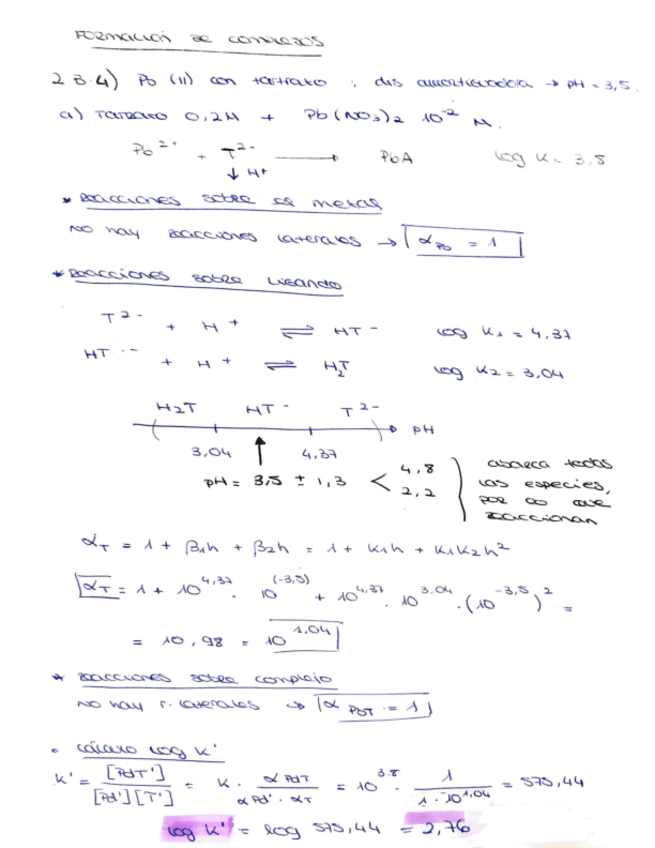 Formación de complejos
2 B.4) Pb (II) con tartrato ; dis amortiguadora → pH = 3,5.
a) Tartrato 0,2M + Pb(NO3)2 10^-2 M.
Pb^2+ + T^2- → PbA log K = 3,8
↓ H+
* Reacciones sobre el metal
No hay reacciones laterales → α_Pb = 1
* Reacciones sobre ligando
T^2- + H+ ⇌ HT- log K1 = 4,37
HT- + H+ ⇌ H2T log K2 = 3,04
H2T HT- T^2- pH
3,04 4,37
pH = 3,5 ± 1,3 < 4,8 2,2
abarca todas
las especies,
por lo que
reaccionan
α_T = 1 + β1h + β2h = 1 + K1h + K1K2h^2
α_T = 1 + 10^4,37 · 10^(-3,5) + 10^4,37 · 10^3,04 · (10^-3,5)^2 =
= 10,98 = 10^1,04
* Reacciones sobre complejo
No hay r. laterales → α_PbT = 1
• Cálculo log K'
K' = [PbT'] / [Pb'][T'] = K · α PbT / α Pb' · αT = 10^3.8 · 1 / 1 · 10^1,04 = 575,44
log K' = log 575,44 = 2,76